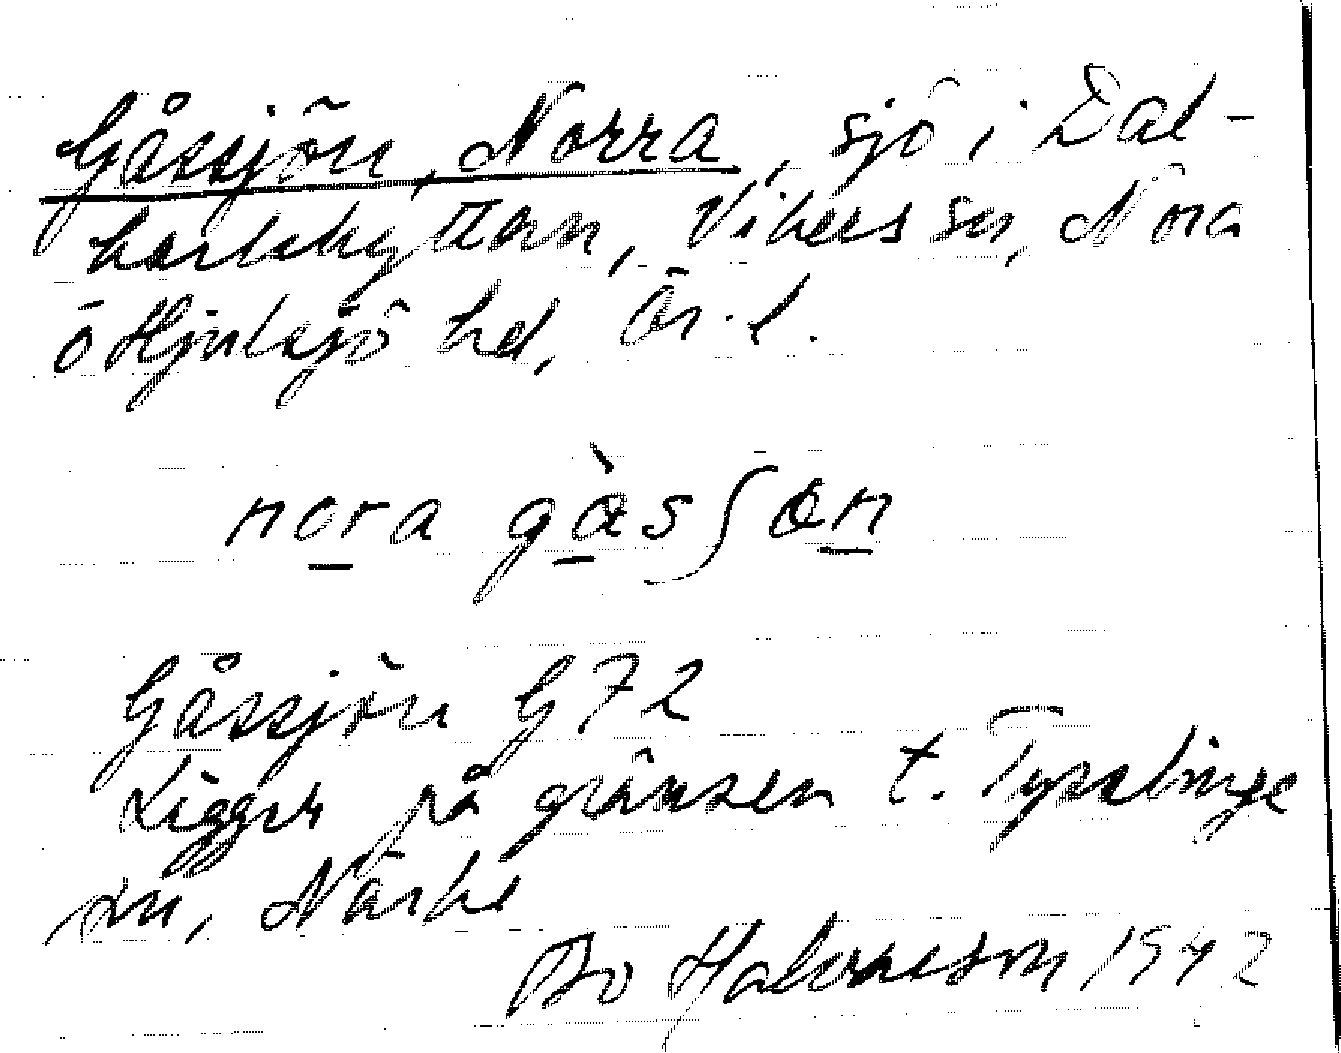 Gåssjön, Norra, sjö i Dal-
karlshyttan, Vikers sn, Nora
o Hjulsjö hd, Ör. l.
nora gàsʃɷn
Gåssjön G72
Ligger på gränsen t. Tysslinge
sn, Närke
Bo 1942